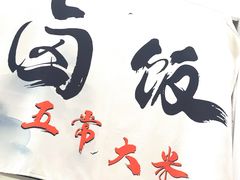 卤饭
五常大米